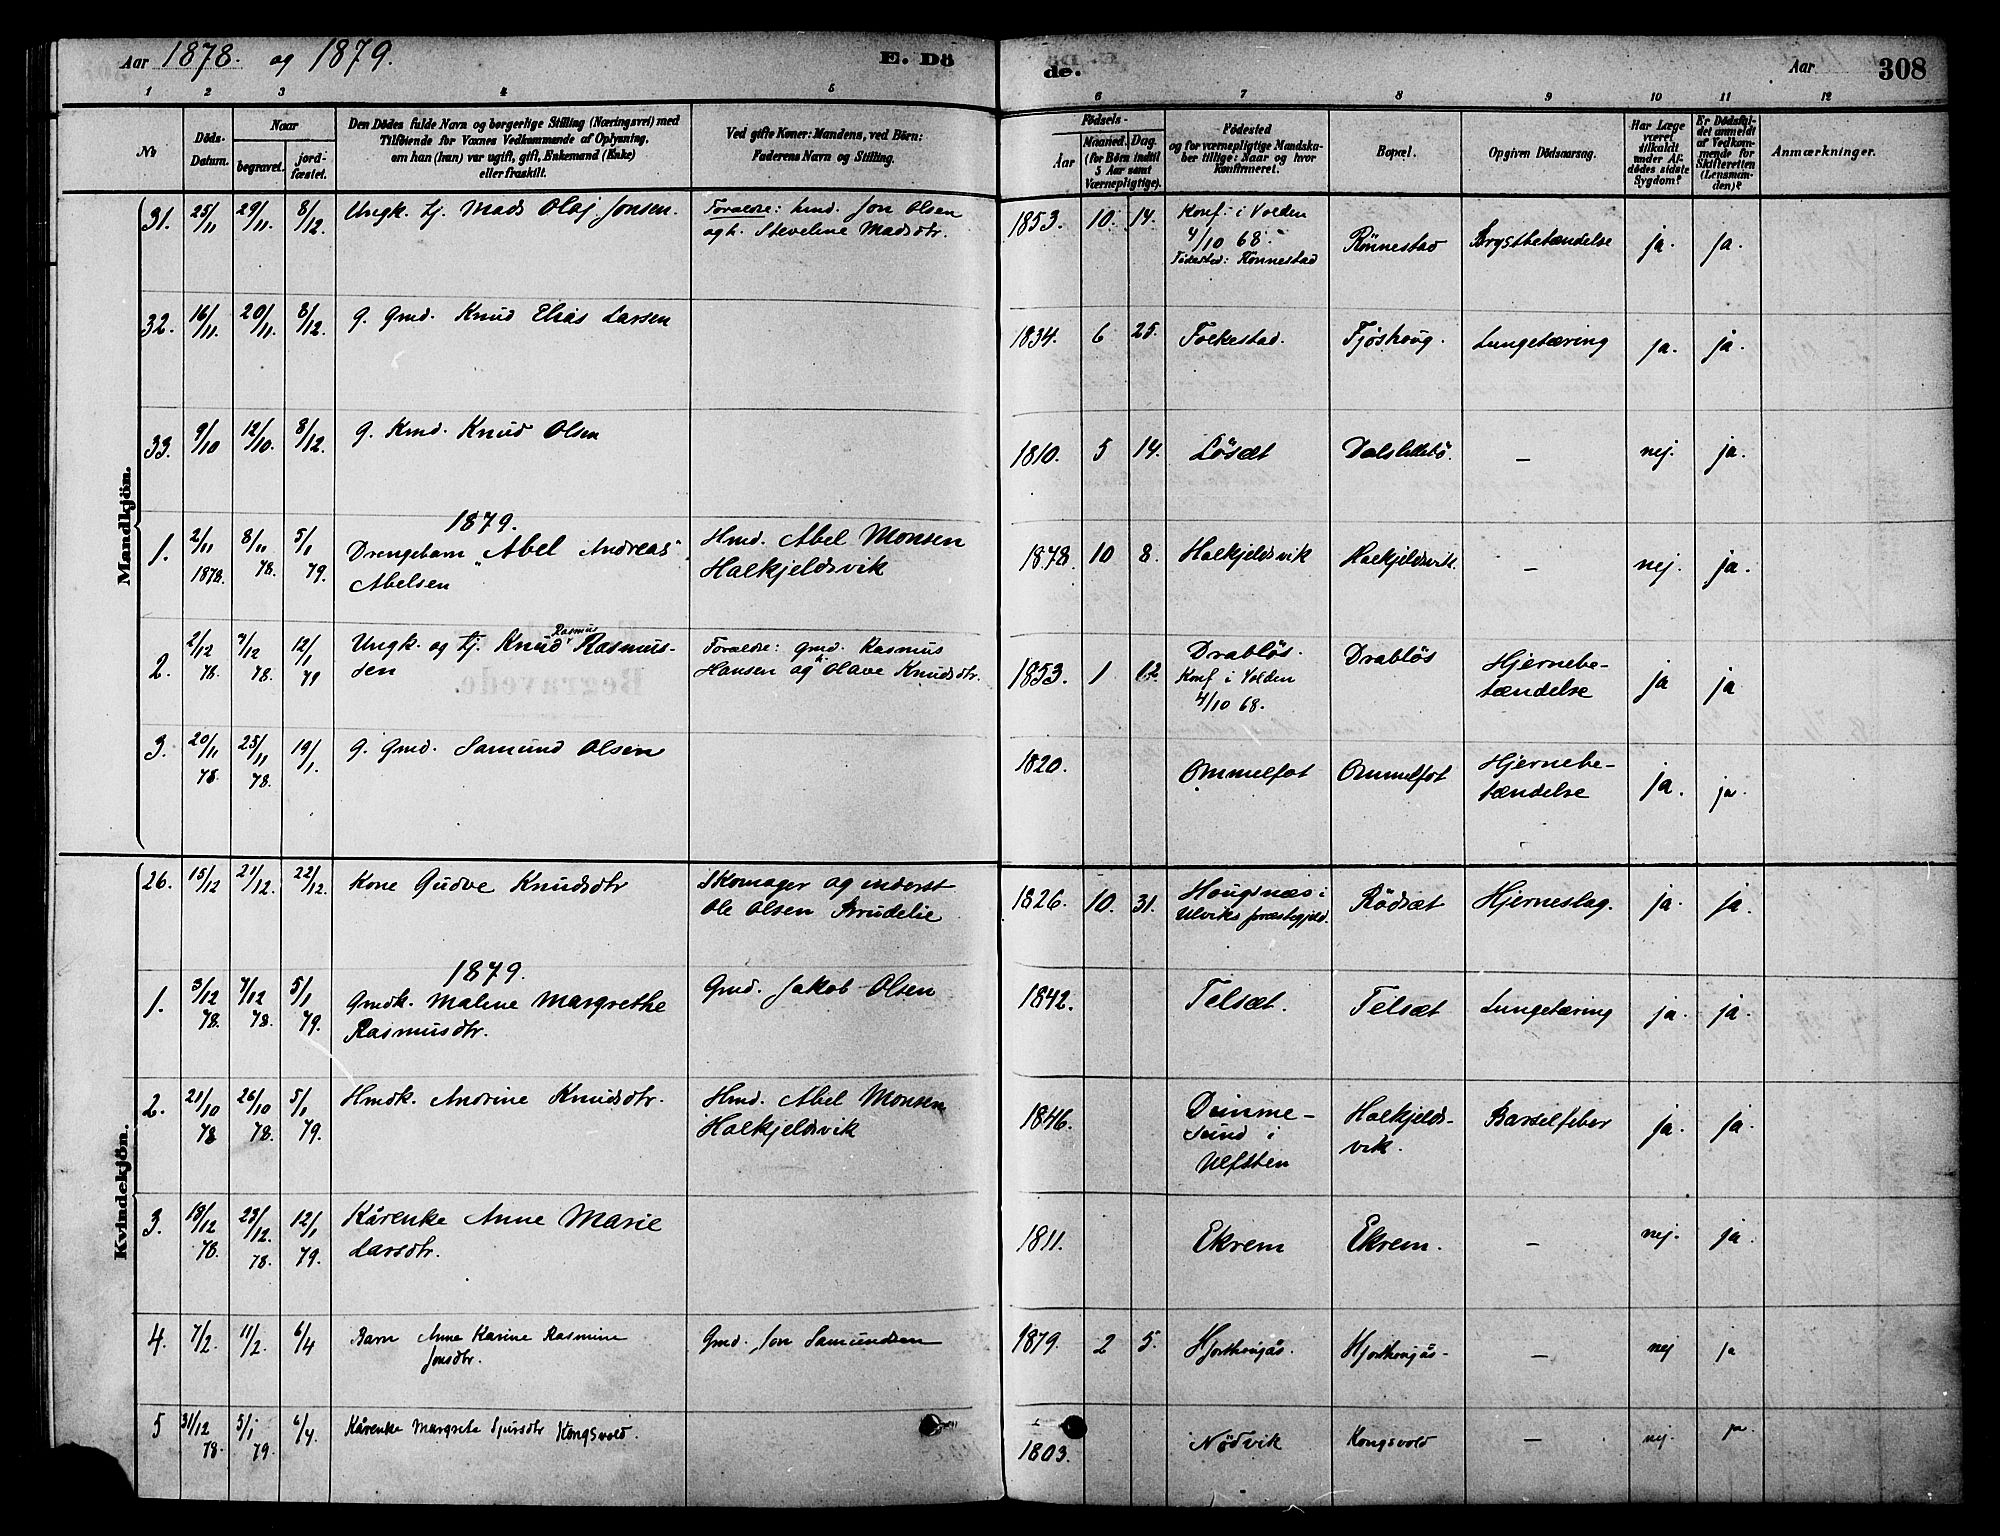 Aar 1878. og 1879.
E. Dö
de.
Aar
308
1 2 3 4 5
6 7 8 9 10 11 12
No
Döds-
Datum.
Naar
begravet.
jord-
fæstet.
Den Dödes fulde Navn og borgerlige Stilling (Næringsvei) med
Tilföiende for Voxnes Vedkommende af Oplysning,
om han (hun) var ugift, gift, Enkemand (Enke)
eller fraskilt.
Ved gifte Koner: Mandens, ved Börn:
Faderens Navn og Stilling.
Födsels-
Aar
Maaned. Dag.
(for Börn indtil
5 Aar samt
Værnepligtige).
Födested
og for værnepligtige Mandska-
ber tillige: Naar og hvor
Konfirmeret.
Bopæl.
Opgiven Dödsaarsag.
Har Læge
været
tilkaldt
under Af-
dödes sidste
Sygdom?
Er Dödsfal-
det anmeldt
af Vedkom-
mende for
Skifteretten
(Lensman-
den)?
Anmærkninger.
Mandkjön.
31. 25/11 29/11. 8/12 Ungk. tj. Mads Olaj Jonsen. Forældre: hmd. Jon Olsen
og h. Steveline Madsdtr.
1853. 10. 14. Konf. i Volden
4/10 68.
Födested: Rönnestad
Rönnestad Brystbetændelse ja. ja.
32. 16/11 20/11. 8/12. g. Gmd. Knud Elias Larsen
1834. 6 25. Folkestad. Fjöshoug. Lungetæring ja. ja.
33. 9/10 12/10. 8/12. g. Kmd. Knud Olsen
1810. 5 14. Lösæt Dalslidebö. — nej. ja.
1879.
1. 2/11 1878. 8/11 78. 5/1 79. Drengebarn Abel Andreas
Abelsen
Hmd. Abel Monsen
Halkjeldsvik
1878 10 8. Halkjeldsvik Halkjeldsvik — nej. ja.
2. 2/12 78. 7/12 78. 12/1 79 Ungk. og tj. Knud Rasmus Rasmus-
sen
Forældre: gmd. Rasmus
Hansen og h. Olave Knudsdtr.
1853. 1 12. Drablös.
Konf. i Volden
4/10 68.
Drablös Hjernebe-
tændelse
ja ja
3. 20/11 78. 25/11 78. 19/1. g. Gmd. Samund Olsen
1820. Ommelfot Ommelfot Hjernebe-
tændelse
ja. ja.
Kvindekjön.
26. 15/12 21/12. 22/12. Kone Gudve Knudsdtr Skomager og inderst
Ole Olsen Brudelie
1826. 10. 31. Hougsnæs i
Ulviks præstegjeld.
Rödsæt Hjerneslag. ja. ja.
1879.
1. 3/12 78. 7/12 78. 5/1 79. Gmdk. Malene Margrethe
Rasmusdtr.
Gmd. Jakob Olsen
1842. Telsæt. Telsæt Lungetæring ja. ja.
2. 21/10 78 26/10 78. 5/1 79. Hmdk. Andrine Knudsdtr. Hmd. Abel Monsen
Halkjeldsvik
1846. Dimme-
sund i
Ulfsten
Halkjelds-
vik.
Barselfeber ja. ja.
3. 18/12 78. 23/12. 78. 12/1 79. Kårenke Anne Marie
Larsdtr.
1811. Ekrem Ekrem. — nej. ja.
4. 7/2. 11/2 6/4 Barn Anne Karine Rasmine
Jonsdtr.
Gmd. Jon Samundsen
1879. 2 5. Hjorthougås. Hjorthougås. — nej ja
5 31/12 78. 5/1 79. 6/4. Kårenke Margrete Sjursdtr Kongsvold.
1803. Nödvik Kongsvold — nej. ja